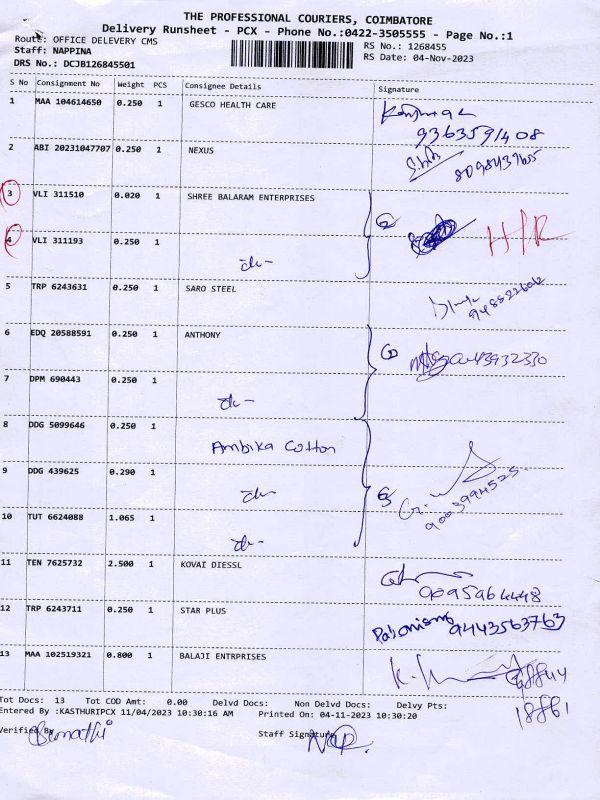 THE PROFESSIONAL COURIERS, COIMBATORE
Delivery Runsheet - PCX - Phone No.:0422-3505555 - Page No.:1
Route: OFFICE DELEVERY CMS
RS No.: 1268455
Staff: NAPPINA
RS Date: 04-Nov-2023
DRS No.: DCJB126845501
S No Consignment No Weight PCS Consignee Details Signature
1 MAA 104614650 0.250 1 GESCO HEALTH CARE
9363591408
2 ABI 20231047707 0.250 1 NEXUS
8098437655
3 VLI 311510 0.020 1 SHREE BALARAM ENTERPRISES
H/R
4 VLI 311193 0.250 1
5 TRP 6243631 0.250 1 SARO STEEL
6 EDQ 20588591 0.250 1 ANTHONY
7 DPM 690443 0.250 1
8 DDG 5099646 0.250 1 Ambika Cotton
9 DDG 439625 0.290 1
9003994525
10 TUT 6624088 1.065 1
11 TEN 7625732 2.500 1 KOVAI DIESSL
9095964448
12 TRP 6243711 0.250 1 STAR PLUS
9443563763
13 MAA 102519321 0.800 1 BALAJI ENTRPRISES
Tot Docs: 13 Tot COD Amt: 0.00 Delvd Docs: Non Delvd Docs: Delvy Pts:
Entered By :KASTHURIPCX 11/04/2023 10:30:16 AM Printed On: 04-11-2023 10:30:20
Verified By
Staff Signature